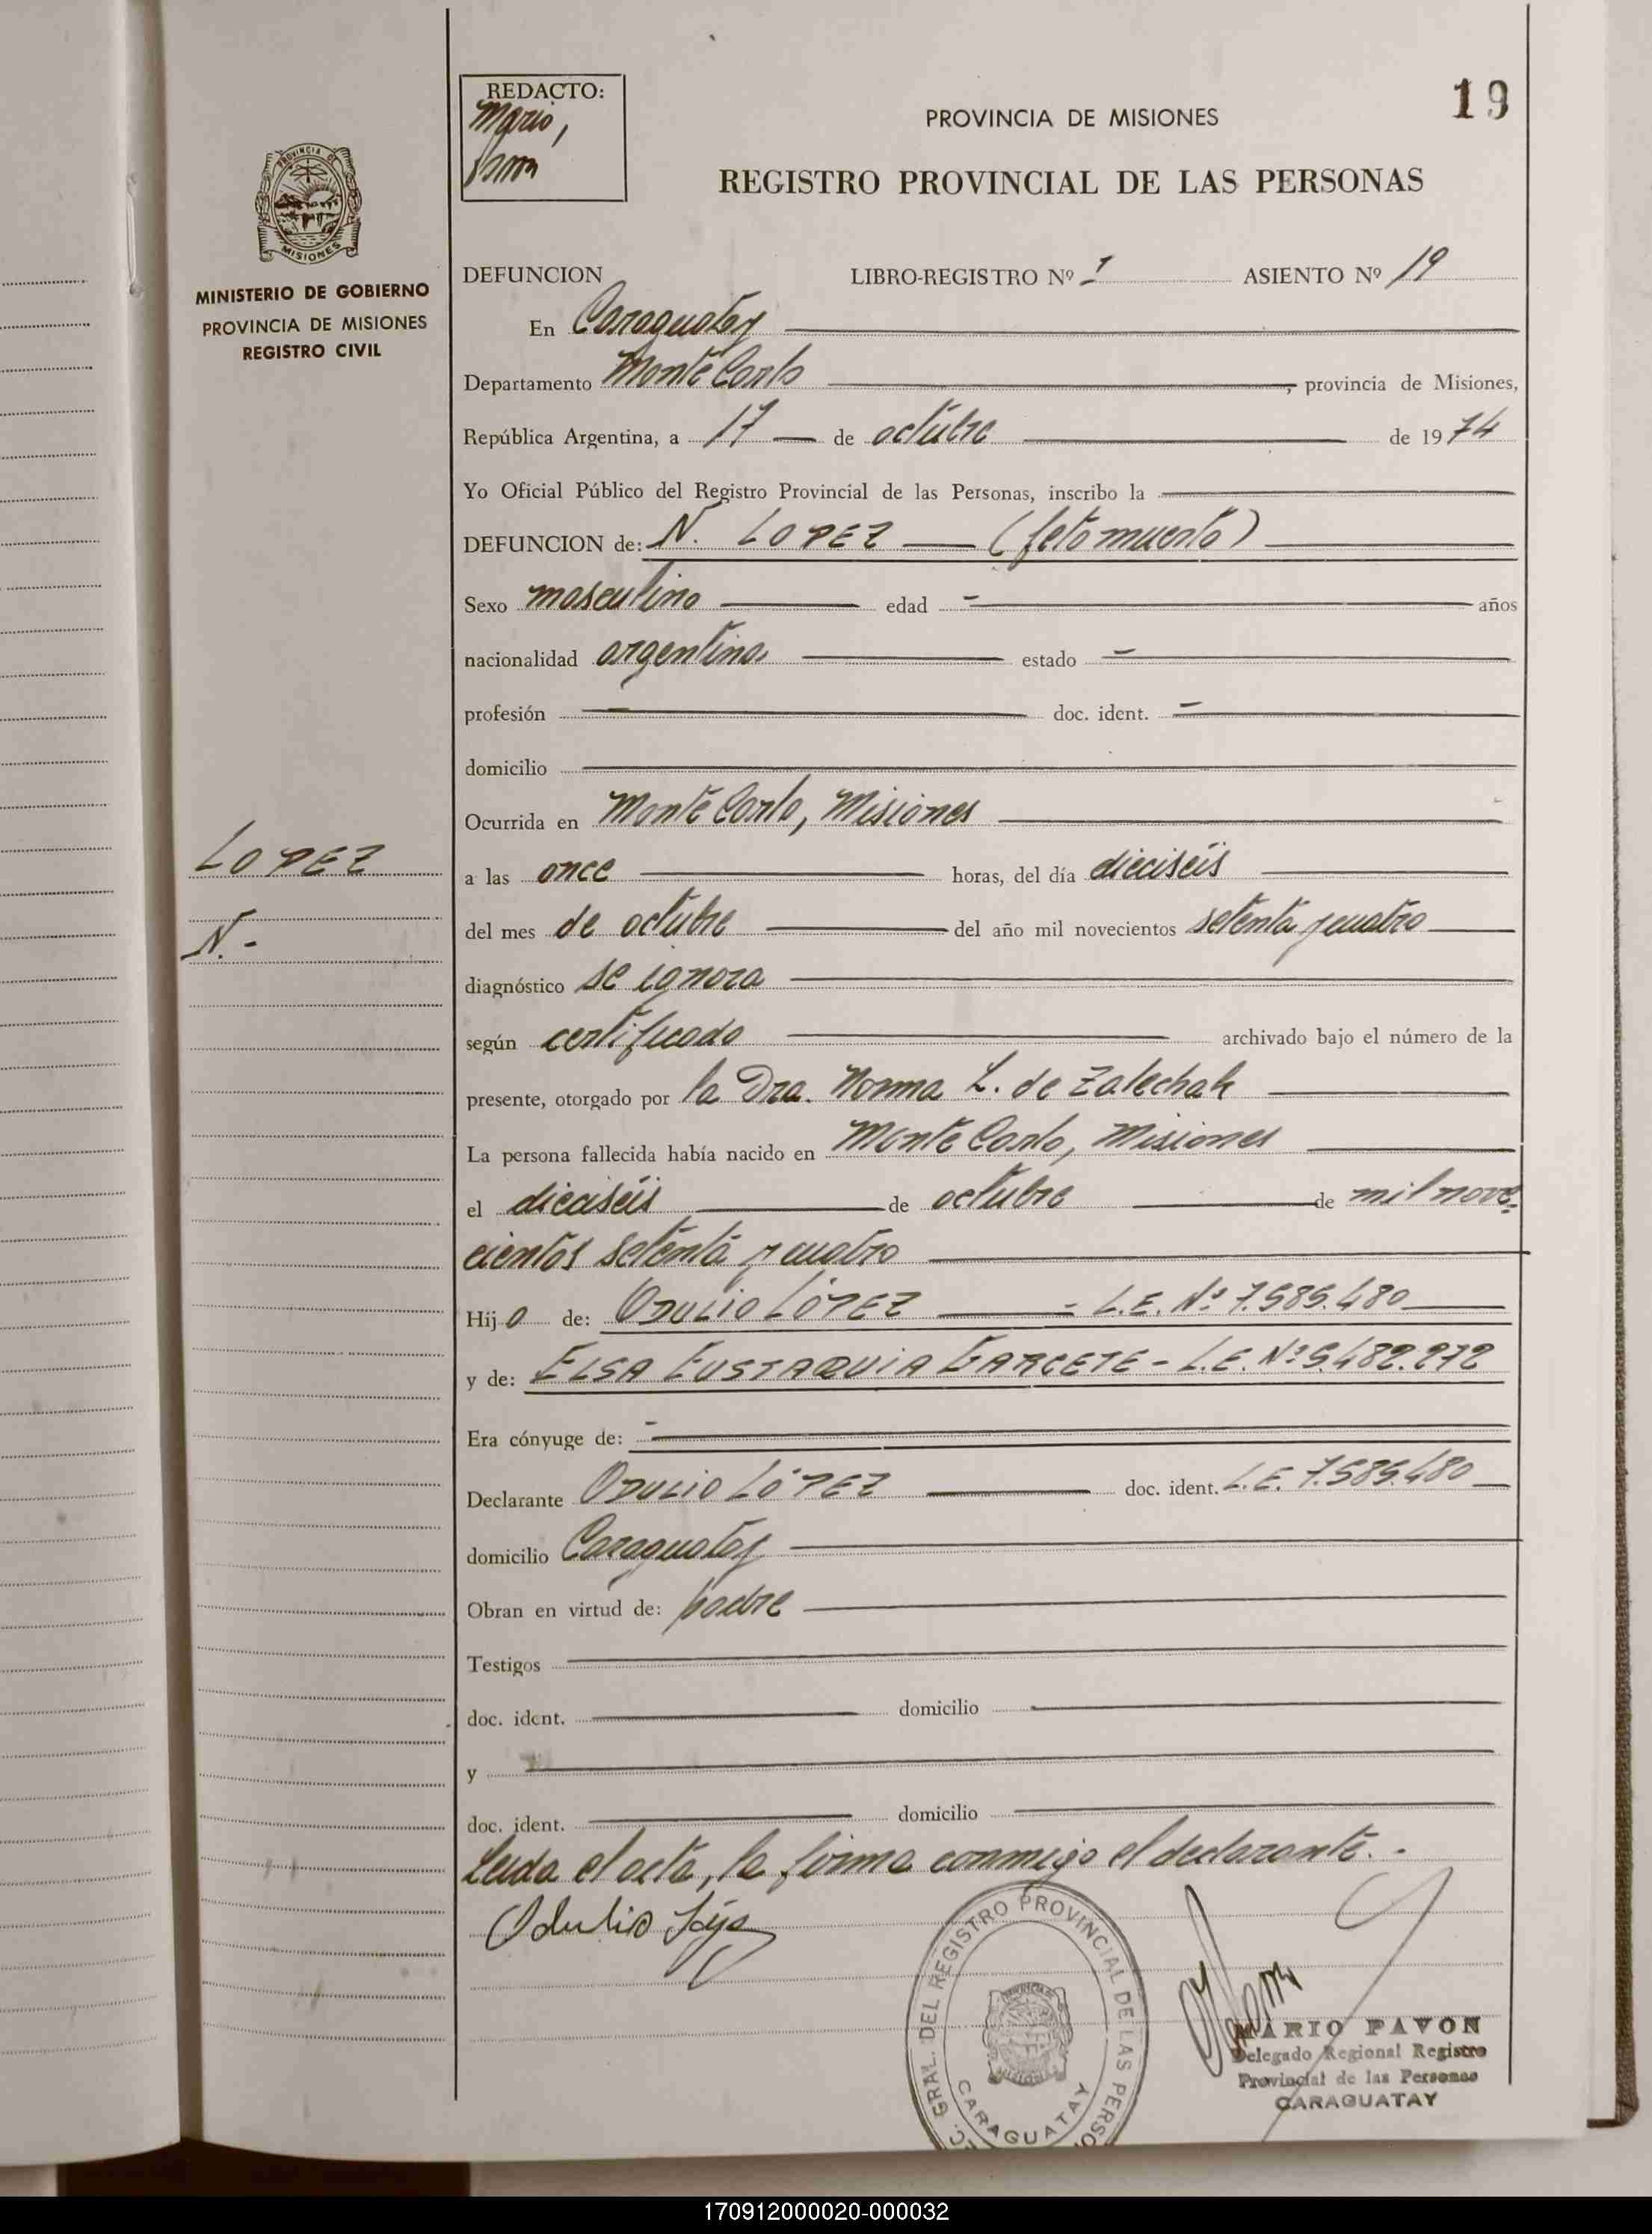 REDACTO:
Mario,
19
PROVINCIA DE MISIONES
REGISTRO PROVINCIAL DE LAS PERSONAS
PROVINCIA DE
MISIONES
MINISTERIO DE GOBIERNO
PROVINCIA DE MISIONES
REGISTRO CIVIL
DEFUNCION LIBRO-REGISTRO Nº 1 ASIENTO Nº 19
En Caraguatay
Departamento Monte Carlo, provincia de Misiones,
República Argentina, a 17 de octubre de 1974
Yo Oficial Público del Registro Provincial de las Personas, inscribo la
DEFUNCION de: N. LOPEZ (feto muerto)
Sexo masculino edad - años
nacionalidad argentina estado -
profesión - doc. ident. -
domicilio
Ocurrida en Monte Carlo, Misiones
LOPEZ
N.-
a las once horas, del día dieciséis
del mes de octubre del año mil novecientos setenta y cuatro
diagnóstico se ignora
según certificado archivado bajo el número de la
presente, otorgado por la Dra. Norma L. de Zalechak
La persona fallecida había nacido en Monte Carlo, Misiones
el dieciséis de octubre de mil nove-
cientos setenta y cuatro
Hijo de: ODULIO LÓPEZ - L.E. Nº 7.585.480
y de: ELSA EUSTAQUIA GARCETE - L.E. Nº 5.482.272
Era cónyuge de: -
Declarante ODULIO LÓPEZ doc. ident. L.E. 7.585.480
domicilio Caraguatay
Obran en virtud de: padre
Testigos
doc. ident. domicilio
y
doc. ident. domicilio
Leída el acta, la firma conmigo el declarante.-
Odulio López
GRAL. DEL REGISTRO PROVINCIAL DE LAS PERSO
CARAGUATAY
MARIO PAVON
Delegado Regional Registro
Provincial de las Personas
CARAGUATAY
170912000020-000032